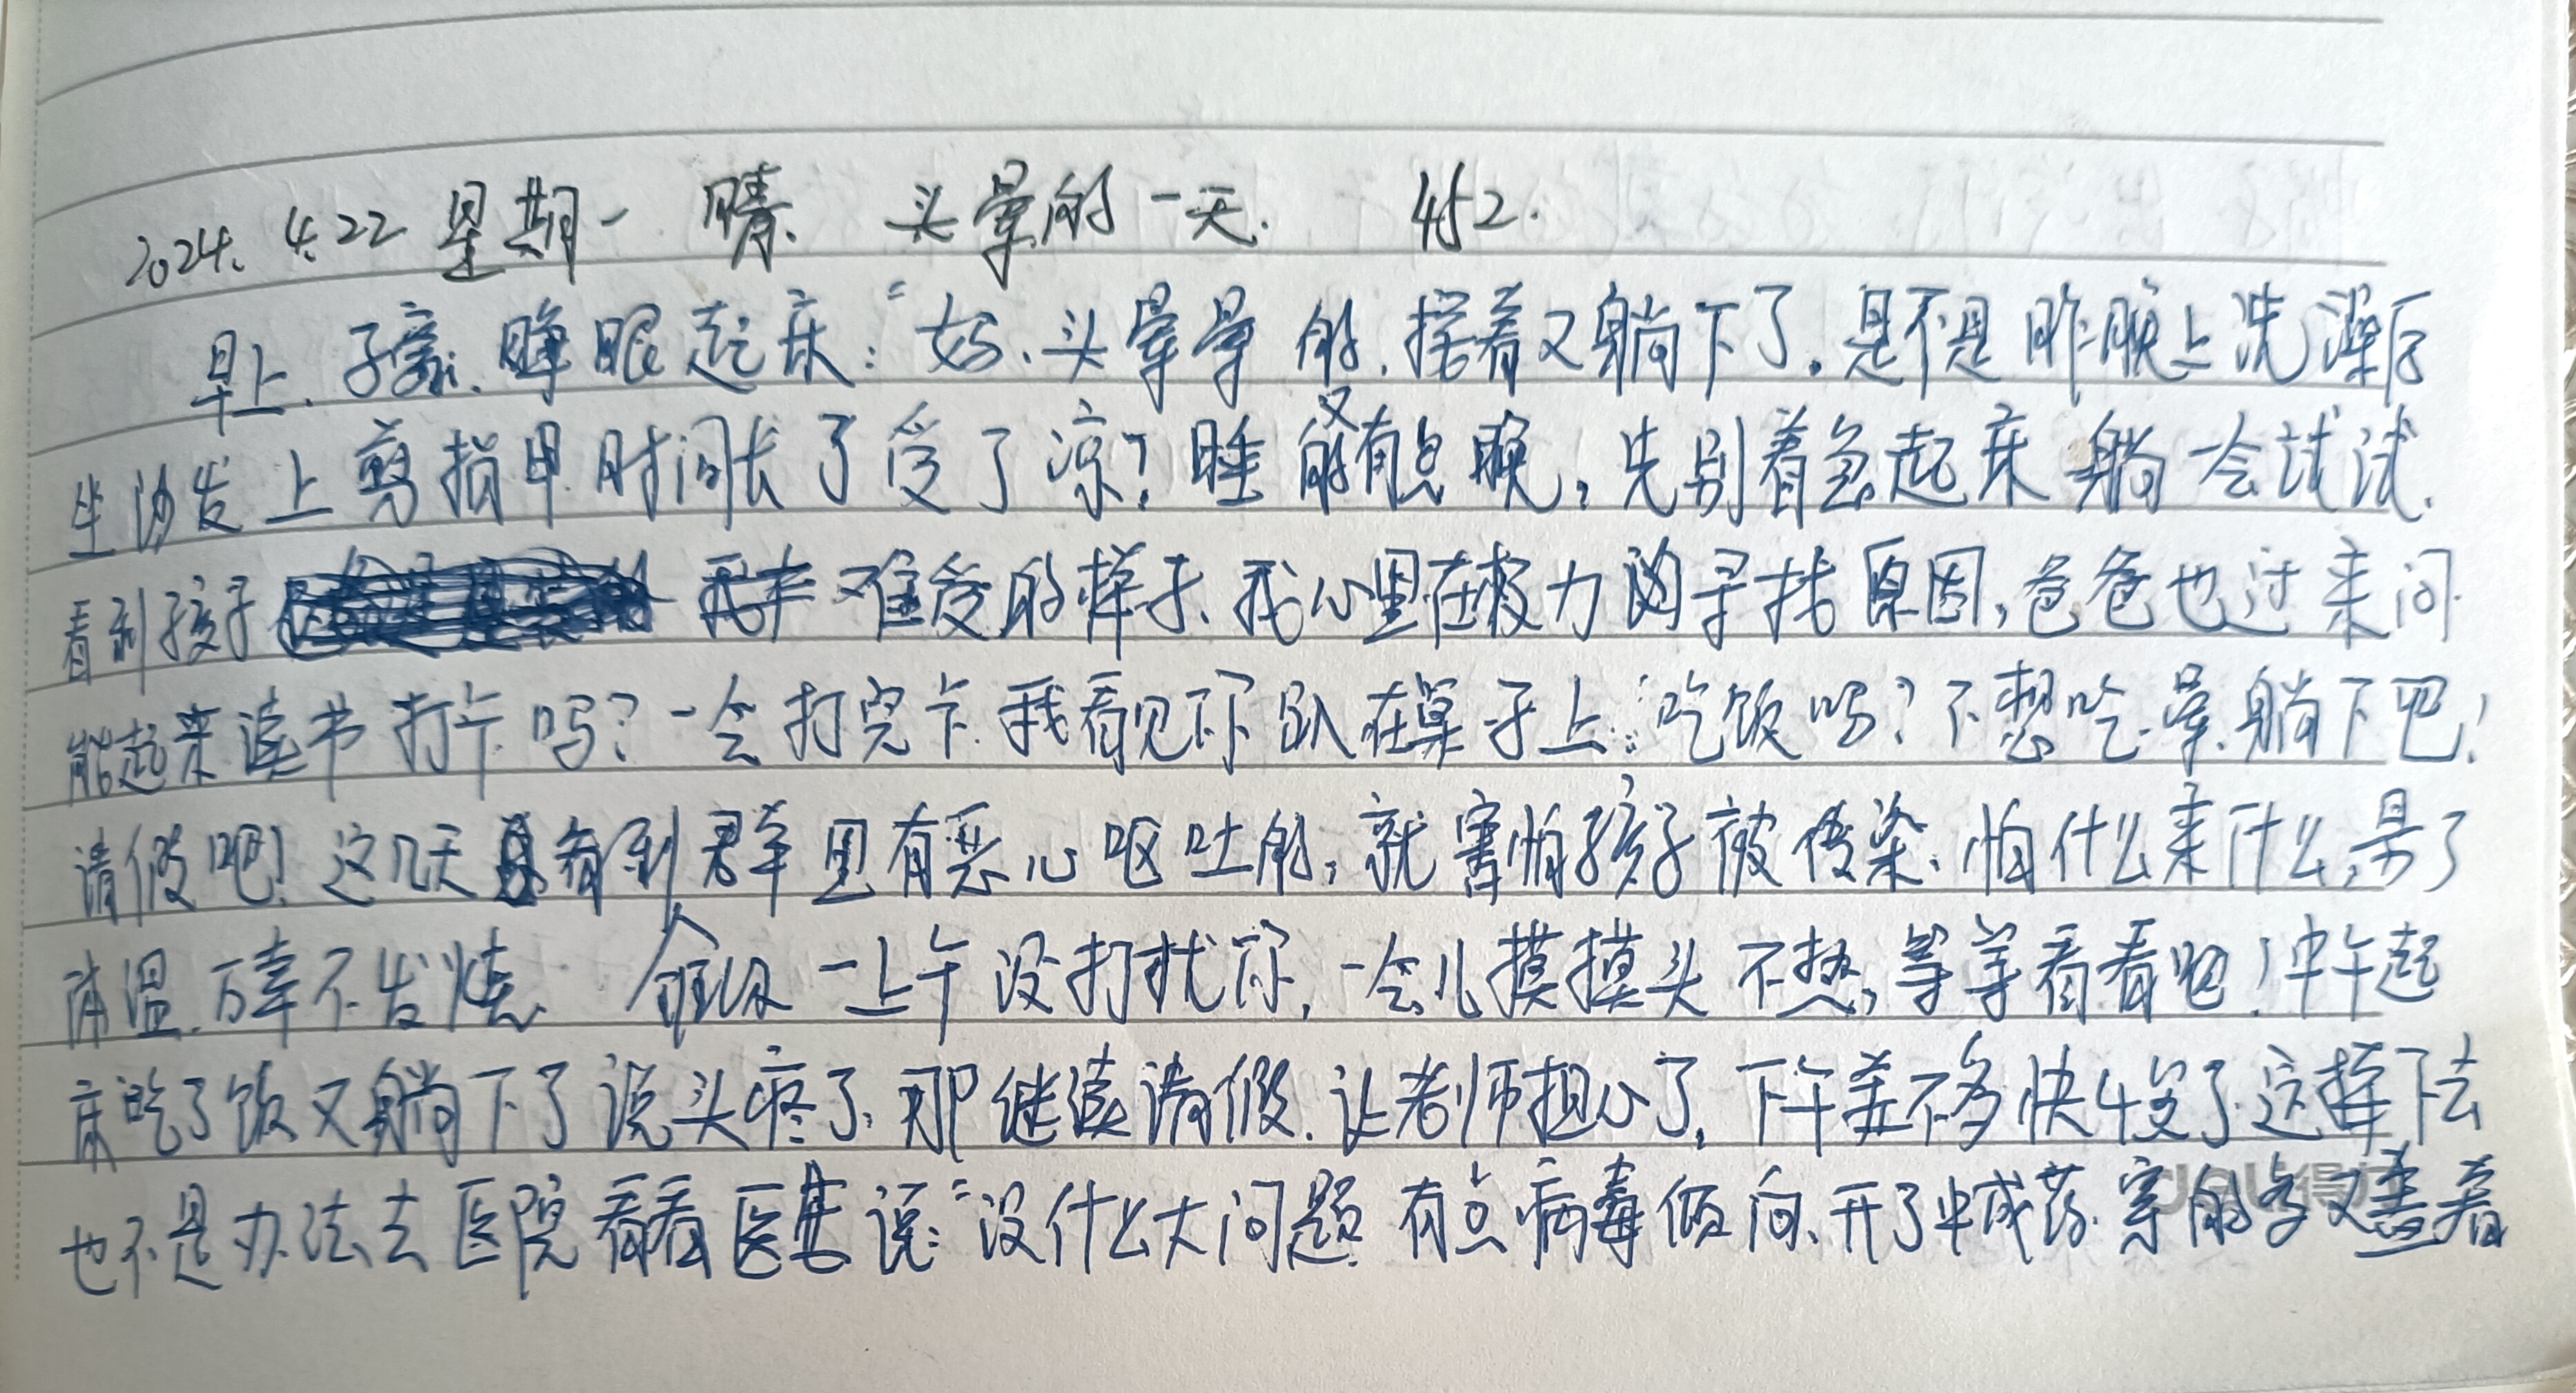 2024.4.22 星期一 晴. 头晕的一天. 452.
早上.子豪.睁眼起床:“妈.头晕晕的.接着又躺下了.是不是昨晚上洗澡后
坐沙发上剪指甲时间长了受了凉?睡的又有点晚,先别着急起床躺一会试试.
看到孩子 难受的样子.我心里在极力的寻找原因,爸爸也过来问
能起来读书打卡吗?一会打完卡.我看见你趴在桌子上:“吃饭吗?不想吃.晕.躺下吧!
请假吧!这几天看到群里有恶心呕吐的,就害怕孩子被传染.怕什么来什么,量了
体温.万幸不发烧. 一上午没打扰你,一会儿摸摸头不热,等等看看吧!中午起
床吃了饭又躺下了说头疼了.那继续请假.让老师担心了.下午差不多快4点了.这样下去
也不是办法去医院看看医生说:“没什么大问题.有点病毒倾向.开了中成药.穿的少又
得力